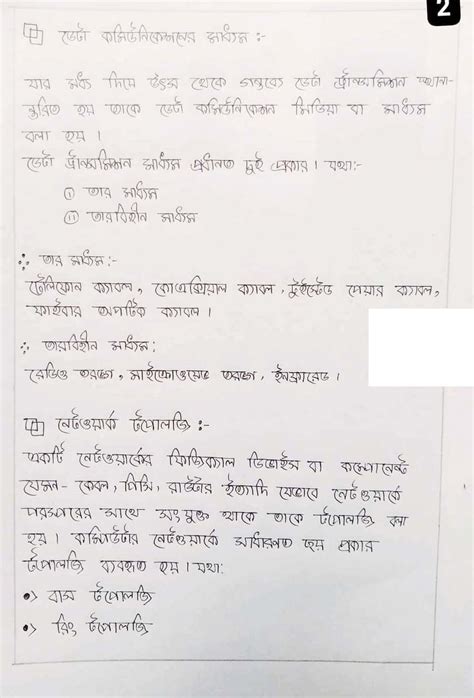 2
ডেটা কমিউনিকেশনের মাধ্যম :-
যার মধ্য দিয়ে উৎস থেকে গন্তব্যে ডেটা ট্রান্সমিশন স্থানা-
ন্তরিত হয় তাকে ডেটা কমিউনিকেশন মিডিয়া বা মাধ্যম
বলা হয় ।
ডেটা ট্রান্সমিশন মাধ্যম প্রধানত দুই প্রকার । যথা:-
(i) তার মাধ্যম
(ii) তারবিহীন মাধ্যম
∴ তার মাধ্যম :-
টেলিফোন ক্যাবল, কোএক্সিয়াল ক্যাবল, টুইস্টেড পেয়ার ক্যাবল,
ফাইবার অপটিক ক্যাবল ।
∴ তারবিহীন মাধ্যম :
রেডিও তরঙ্গ, মাইক্রোওয়েভ তরঙ্গ, ইনফ্রারেড ।
নেটওয়ার্ক টপোলজি :-
একটি নেটওয়ার্কের ফিজিক্যাল ডিভাইস বা কম্পোনেন্ট
যেমন- কেবল, পিসি, রাউটার ইত্যাদি যেভাবে নেটওয়ার্কে
পরস্পরের সাথে সংযুক্ত থাকে তাকে টপোলজি বলা
হয় । কম্পিউটার নেটওয়ার্কে সাধারণত ছয় প্রকার
টপোলজি ব্যবহৃত হয় । যথা:
•> বাস টপোলজি
•> রিং টপোলজি